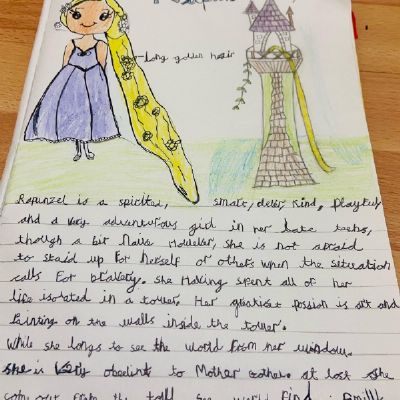 long golden hair
Rapunzel is a spirited, smart, clever, kind, playful,
and a very adventurous girl in her late teens,
though a bit Naive However, she is not afraid
to staid up for herself or others when the situation
calls for bravery. she Having spent all of her
life isolated in a tower. Her greatest passion is art and
Painting on the walls inside the tower.
While she longs to see the world from her window.
she is very obedient to Mother at last she
out from the world find